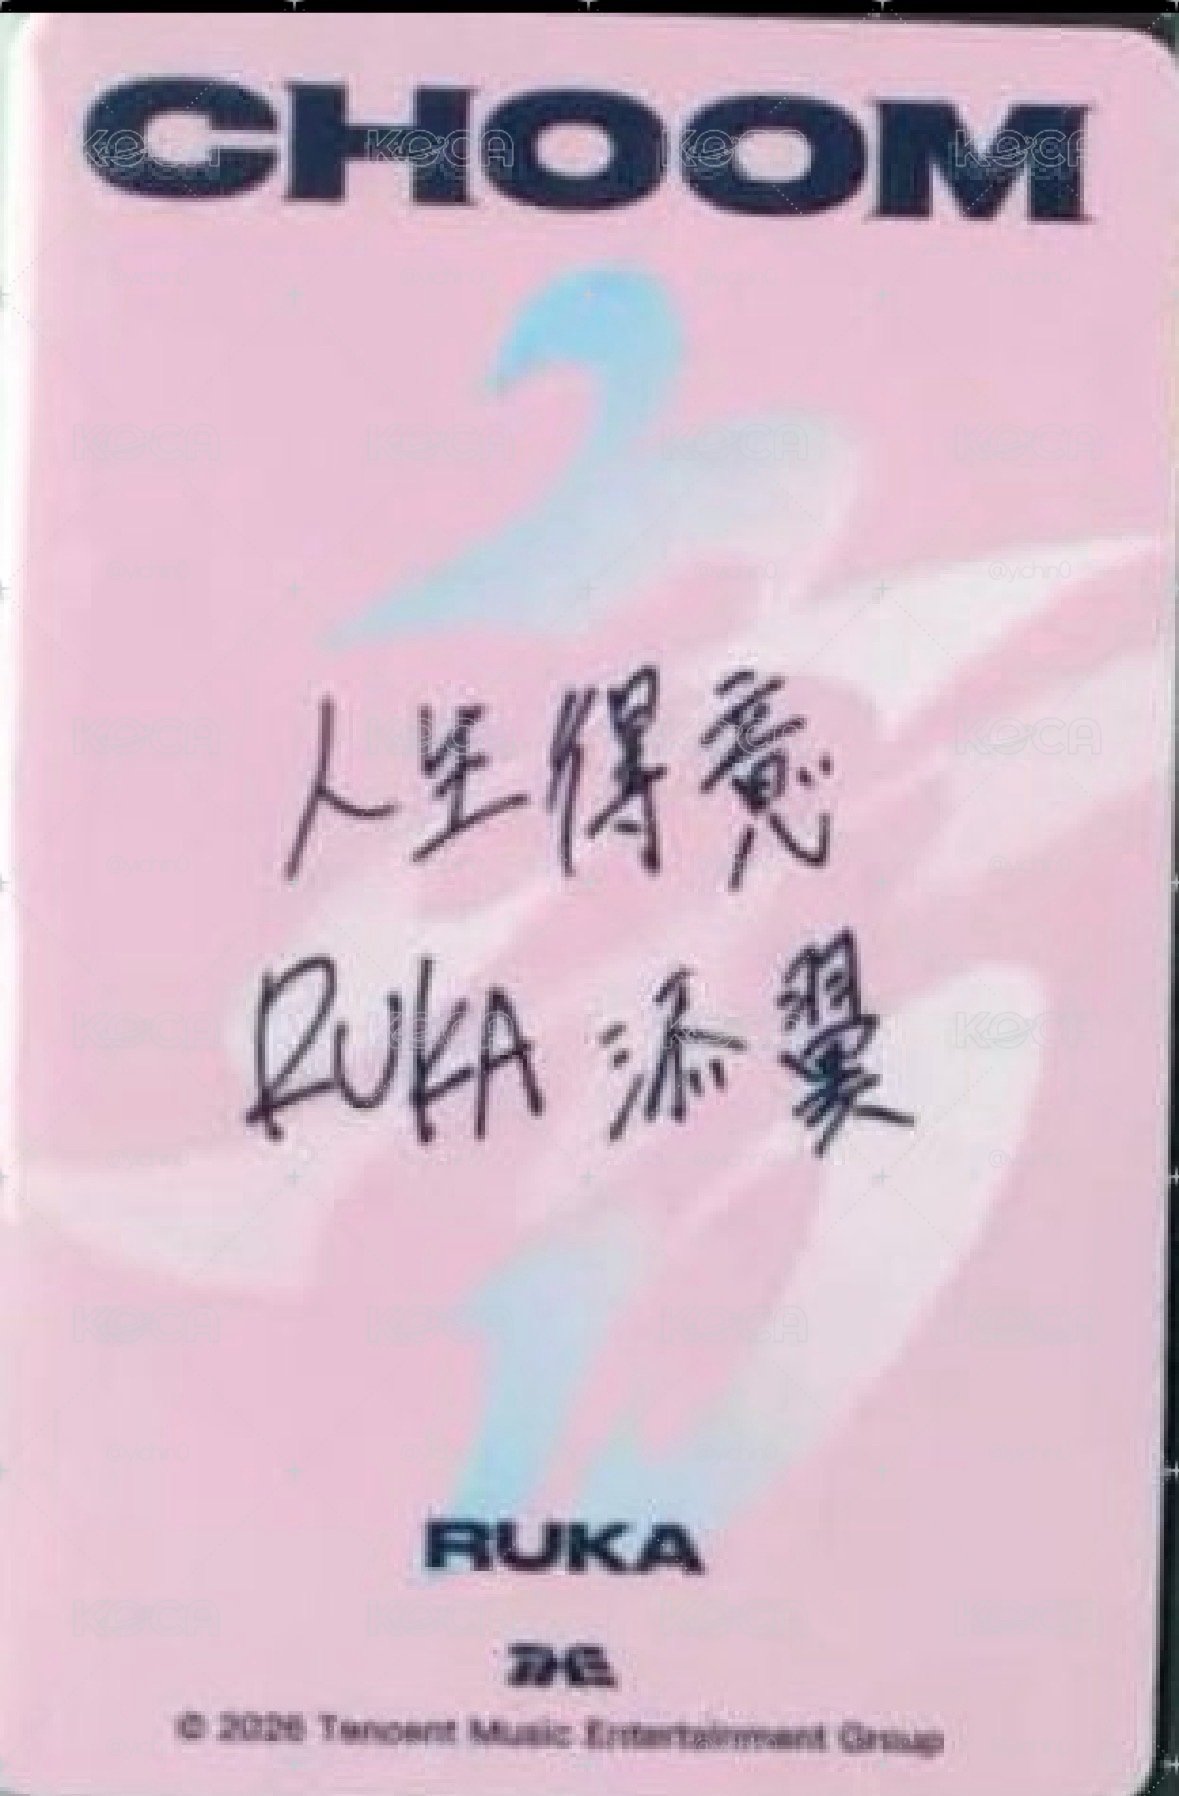 CHOOM
人生得意
RUKA 添翼
RUKA
TME
© 2026 Tencent Music Entertainment Group
KOCA
@ychn0